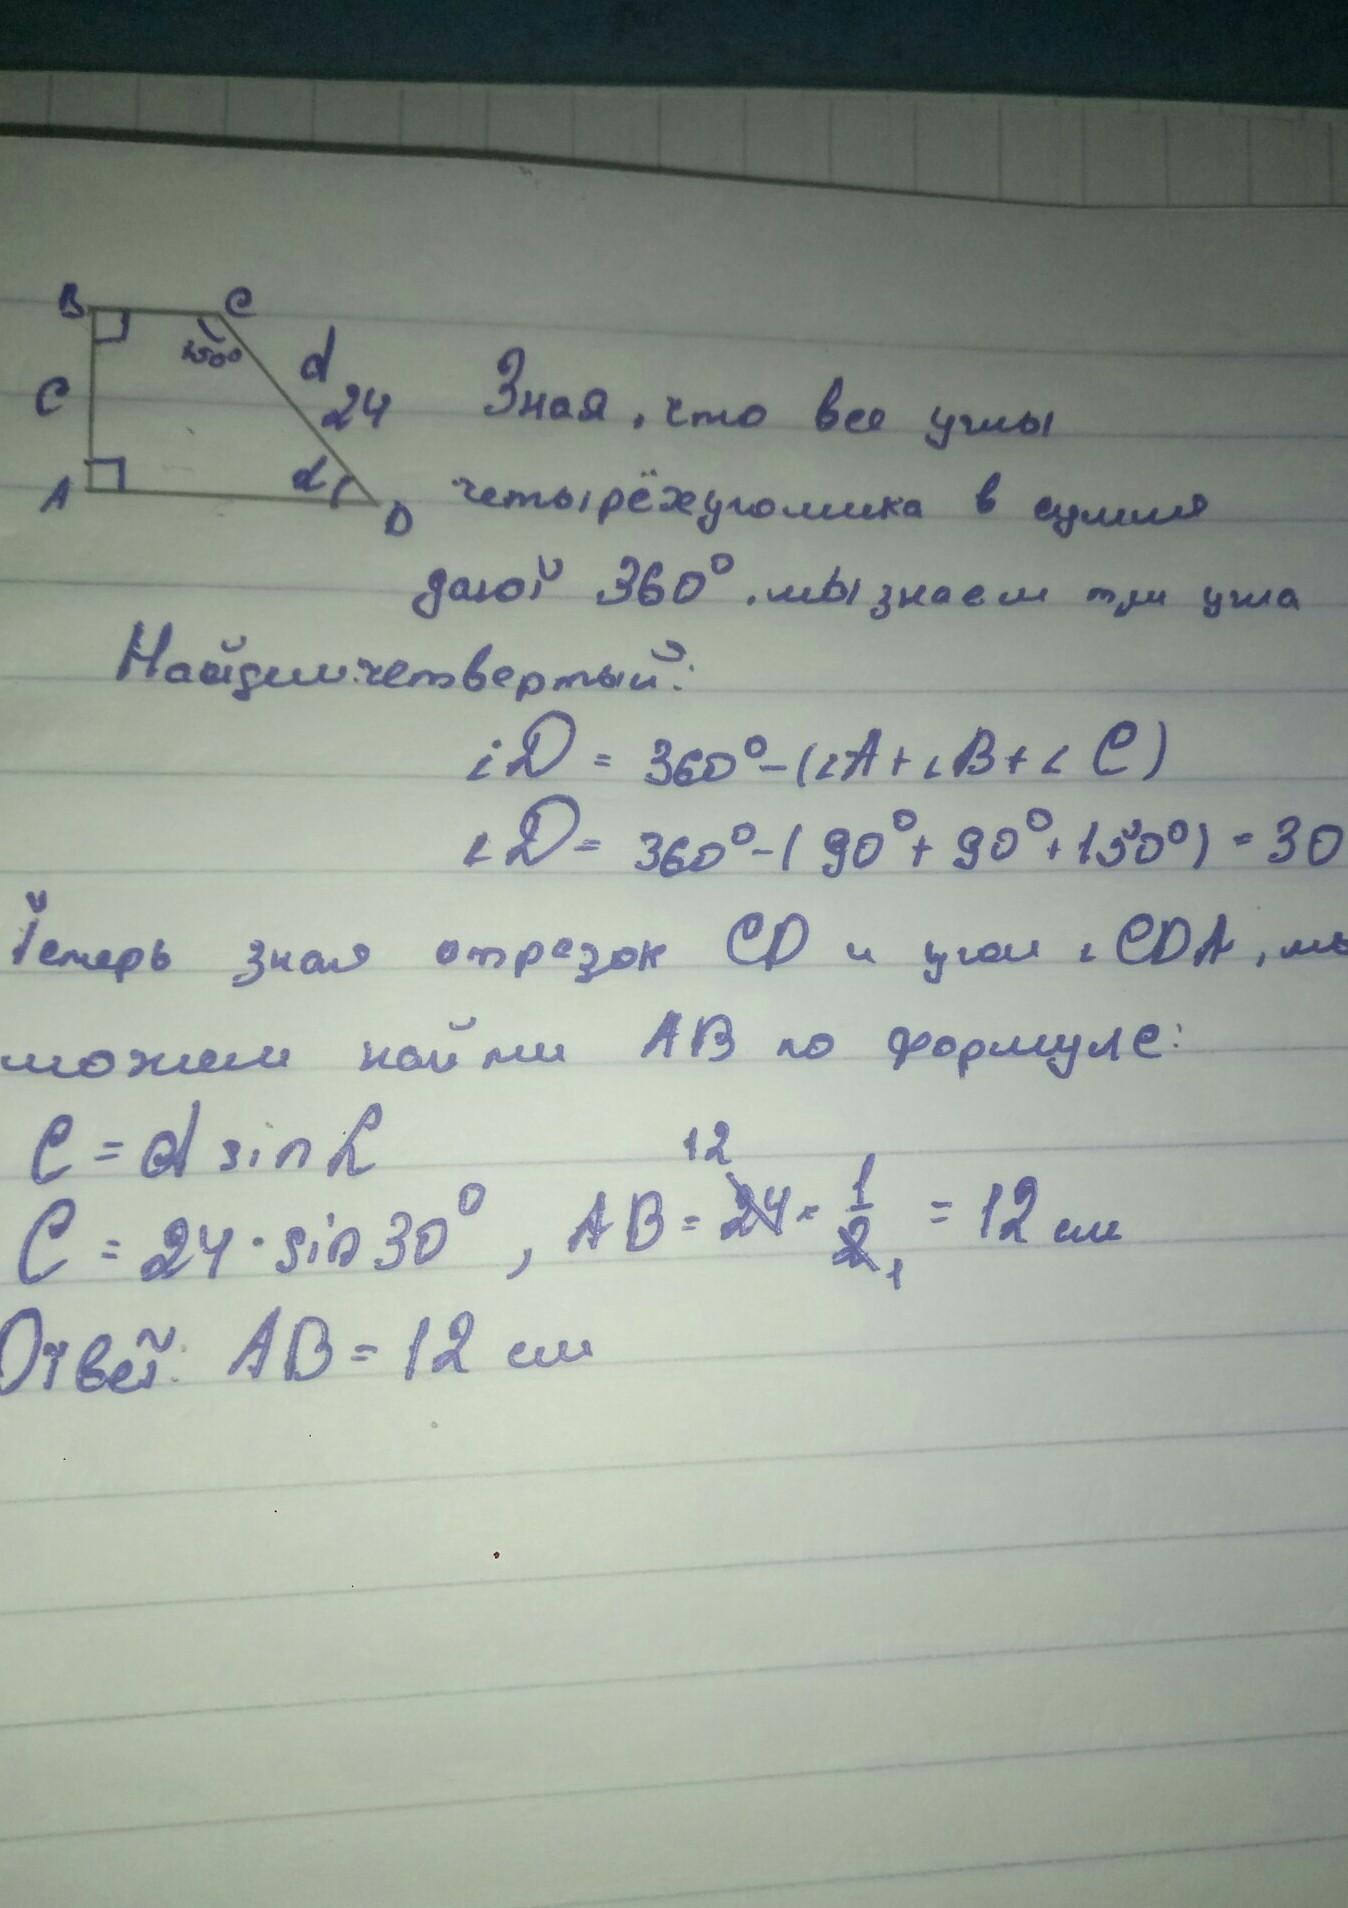 B C
150°
d
C
24
A
α
D
Зная, что все углы
четырёхугольника в сумме
дают 360°, мы знаем три угла
Найдем четвертый:
∠D = 360° - (∠A + ∠B + ∠C)
∠D = 360° - (90° + 90° + 150°) = 30
Теперь зная отрезок CD и угол ∠CDA, мы
можем найти AB по формуле:
C = d sin α
C = 24 · sin 30°, AB = 24 · 1/2 = 12 см
12
1
Ответ: AB = 12 см